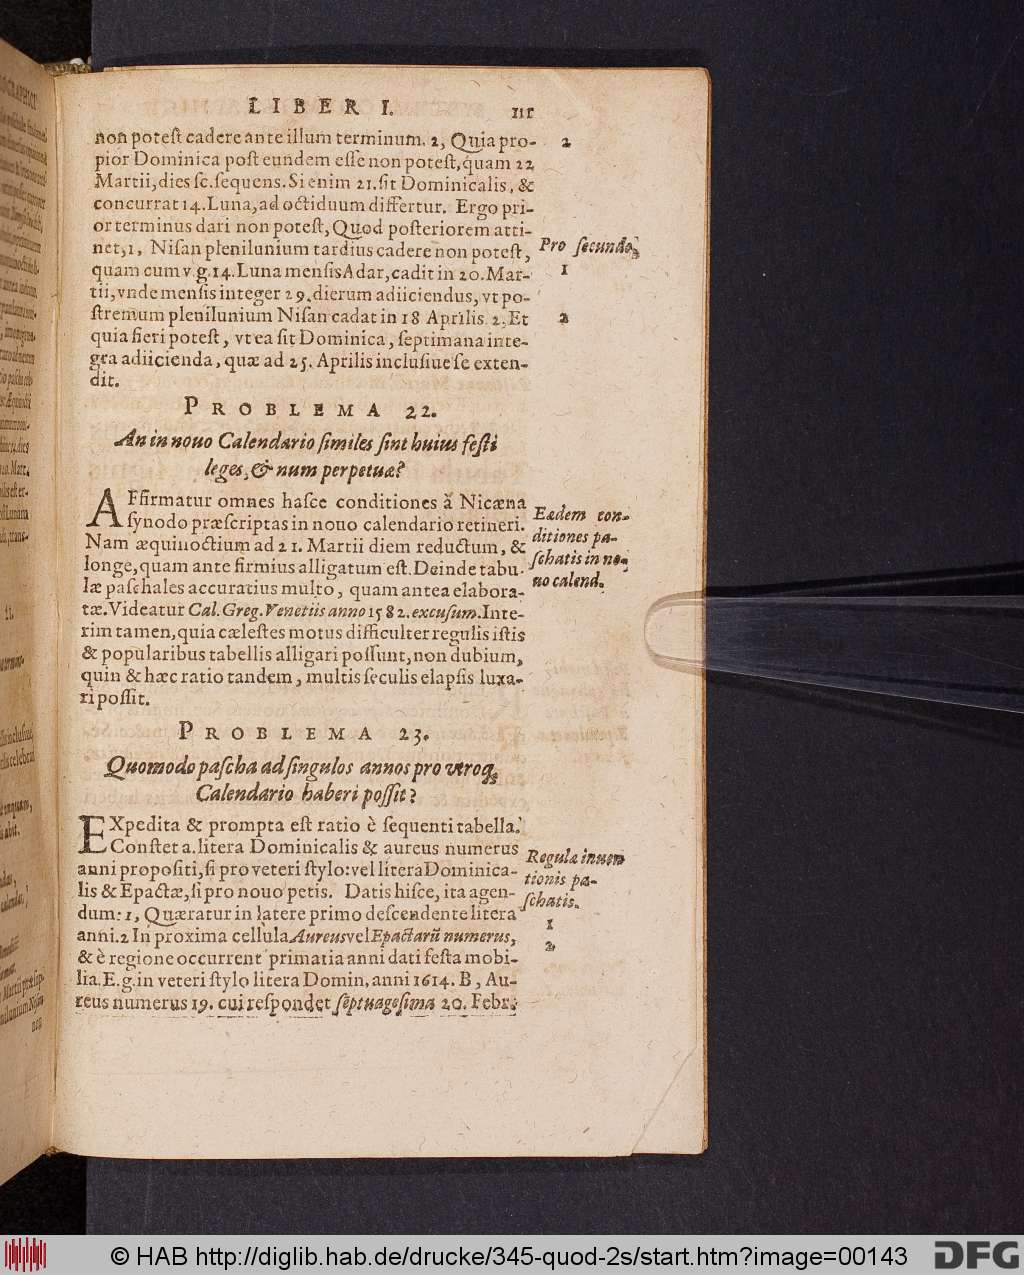 LIBER I. 111
non potest cadere ante illum terminum. 2, Quia pro-
pior Dominica post eundem esse non potest, quam 22
Martii, dies sc. sequens. Si enim 21. sit Dominicalis, &
concurrat 14. Luna, ad octiduum differtur. Ergo pri-
or terminus dari non potest, Quod posteriorem atti-
net, 1, Nisan plenilunium tardius cadere non potest,
quam cum v. g. 14. Luna mensis Adar, cadit in 20. Mar-
tii, vnde mensis integer 29. dierum adiiciendus, vt po-
stremum plenilunium Nisan cadat in 18 Aprilis. 2, Et
quia fieri potest, vt ea sit Dominica, septimana inte-
gra adiicienda, quæ ad 25. Aprilis inclusiue se exten-
dit.
2
Pro secundo,
1
2
PROBLEMA 22.
An in nouo Calendario similes sint huius festi
leges, & num perpetuæ?
AFfirmatur omnes hasce conditiones à Nicæna
synodo præscriptas in nouo calendario retineri.
Nam æquinoctium ad 21. Martii diem reductum, &
longe, quam ante firmius alligatum est. Deinde tabu-
læ paschales accuratius multo, quam antea elabora-
tæ. Videatur Cal. Greg. Venetiis anno 1582. excusum. Inte-
rim tamen, quia cælestes motus difficulter regulis istis
& popularibus tabellis alligari possunt, non dubium,
quin & hæc ratio tandem, multis seculis elapsis luxa-
ri possit.
Eædem con-
ditiones pa-
schatis in no-
uo calend.
PROBLEMA 23.
Quomodo pascha ad singulos annos pro vtroq;
Calendario haberi possit?
EXpedita & prompta est ratio è sequenti tabella.
Constet a. litera Dominicalis & aureus numerus
anni propositi, si pro veteri stylo: vel litera Dominica-
lis & Epactæ, si pro nouo petis. Datis hisce, ita agen-
dum: 1, Quæratur in latere primo descendente litera
anni. 2 In proxima cellula Aureus vel Epactarũ numerus,
& è regione occurrent primatia anni dati festa mobi-
lia. E. g. in veteri stylo litera Domin. anni 1614. B, Au-
reus numerus 19. cui respondet septuagesima 20. Febr.
Regula inuen
tionis pa-
schatis.
1
2
© HAB http://diglib.hab.de/drucke/345-quod-2s/start.htm?image=00143
DFG